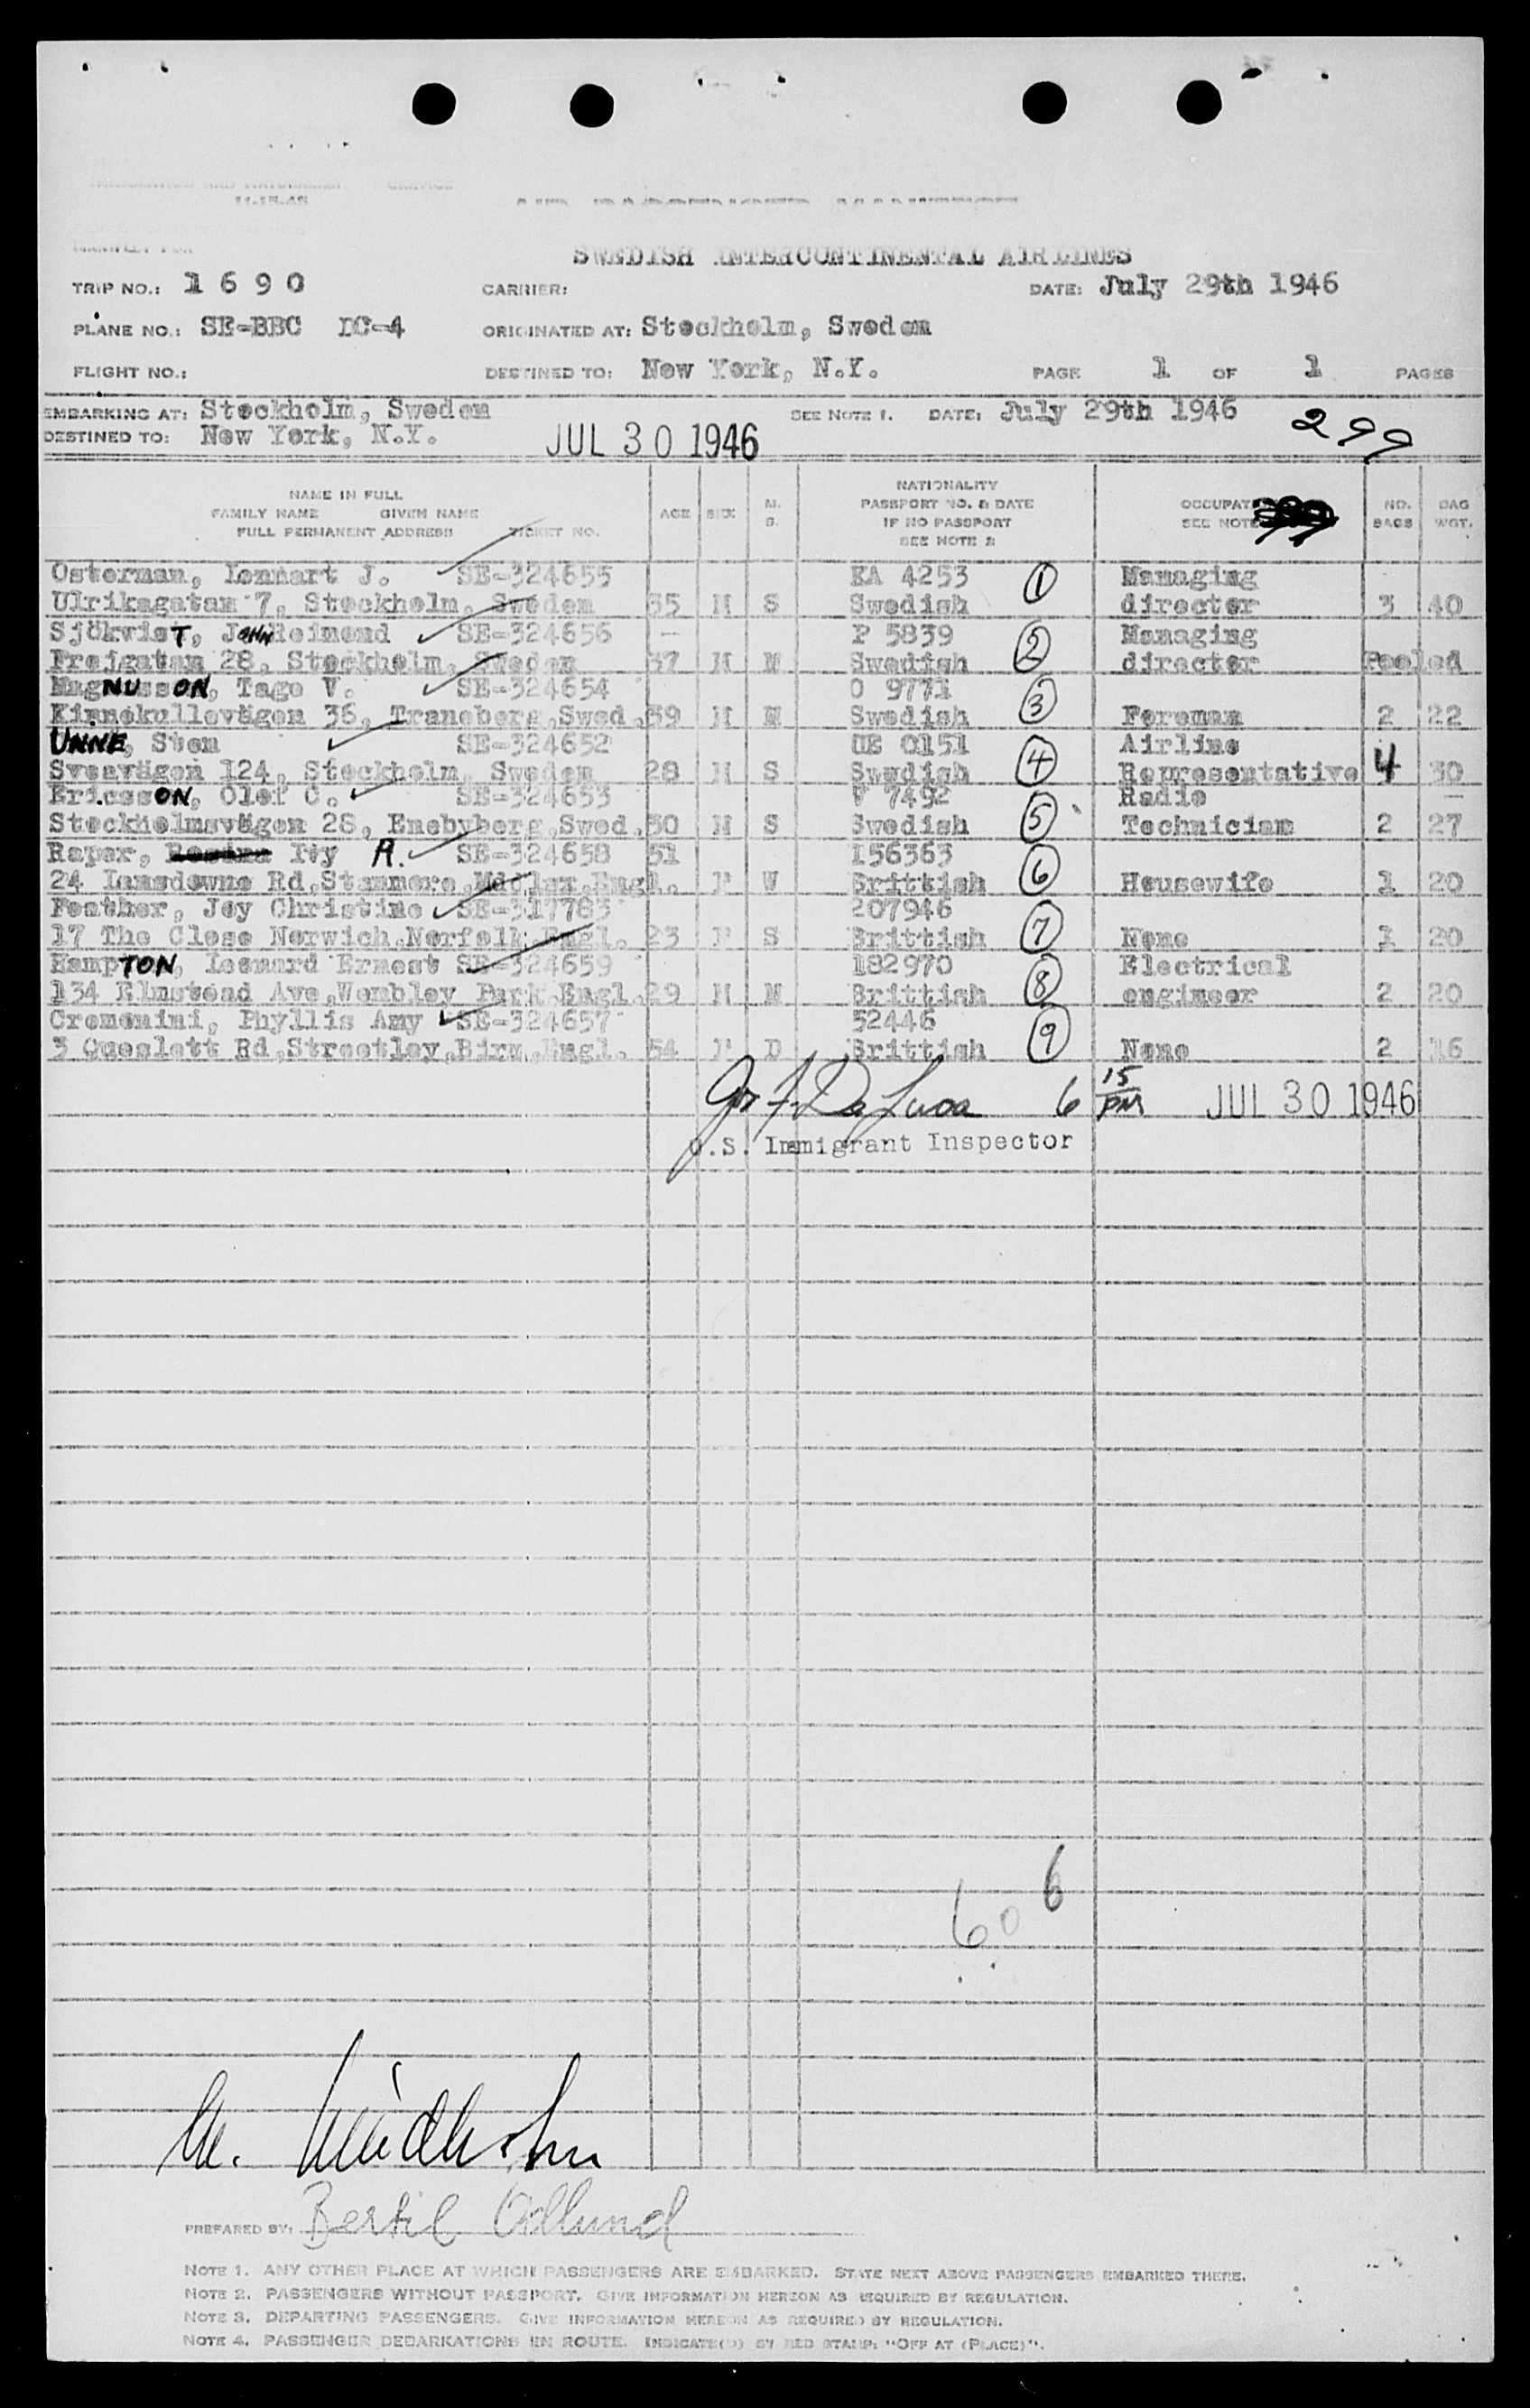 IMMIGRATION AND NATURALIZATION SERVICE
11-15-45
AIR PASSENGER MANIFEST
MANIFEST FOR
SWEDISH INTERCONTINENTAL AIRLINES
TRIP NO.: 1 6 9 0 CARRIER: DATE: July 29th 1946
PLANE NO.: SE-BBC DC-4 ORIGINATED AT: Stockholm, Sweden
FLIGHT NO.: DESTINED TO: New York, N.Y. PAGE 1 OF 1 PAGES
EMBARKING AT: Stockholm, Sweden SEE NOTE 1. DATE: July 29th 1946
DESTINED TO: New York, N.Y. JUL 30 1946 299
NAME IN FULL
FAMILY NAME GIVEN NAME
FULL PERMANENT ADDRESS TICKET NO.
AGE SEX M. S.
NATIONALITY
PASSPORT NO. & DATE
IF NO PASSPORT
SEE NOTE 2
OCCUPAT
SEE NOTE
NO. BAGS
BAG WGT.
Osterman, Lennart J. SE-324655 EA 4253 1 Managing
Ulrikagatan 7, Stockholm, Sweden 35 M S Swedish director 3 40
SjökvisT, JOHN Reimond SE-324656 - P 5839 2 Managing
Frejgatan 28, Stockholm, Sweden 37 M M Swedish director Pooled
MagNUssON, Tage V. SE-324654 O 9771 3
Kinnekullevägen 36, Traneberg,Swed. 39 M M Swedish Foreman 2 22
UNNE, Sten SE-324652 UE 0151 4 Airline
Sveavägen 124, Stockholm, Sweden 28 M S Swedish Representative 4 30
EricssON, Olof C. SE-324653 V 7492 Radio
Stockholmsvägen 28, Enebyberg,Swed. 30 M S Swedish 5 Technician 2 27
Raper, Ivy A. SE-324658 51 156363 6
24 Lansdowne Rd,Stanmore,Mddlsx,Engl. F W Brittish Housewife 1 20
Feather, Joy Christine SE-317783 207946 7
17 The Close Norwich,Norfolk Engl. 23 F S Brittish None 1 20
HampTON, Leonard Ernest SE-324659 182970 8 Electrical
134 Elmstead Ave,Wembley Park Engl. 29 M M Brittish engineer 2 20
Cremonini, Phyllis Amy SE-324657 52446 9
3 Queslett Rd,Streetley,Birm,Engl. 54 F D Brittish None 2 16
6 15 PM JUL 30 1946
U.S. Immigrant Inspector
6
60
PREPARED BY: Bertil Odlund
NOTE 1. ANY OTHER PLACE AT WHICH PASSENGERS ARE EMBARKED. STATE NEXT ABOVE PASSENGERS EMBARKED THERE.
NOTE 2. PASSENGERS WITHOUT PASSPORT. GIVE INFORMATION HEREON AS REQUIRED BY REGULATION.
NOTE 3. DEPARTING PASSENGERS. GIVE INFORMATION HEREON AS REQUIRED BY REGULATION.
NOTE 4. PASSENGER DEBARKATIONS EN ROUTE. INDICATE(D) BY RED STAMP: "OFF AT (PLACE)".